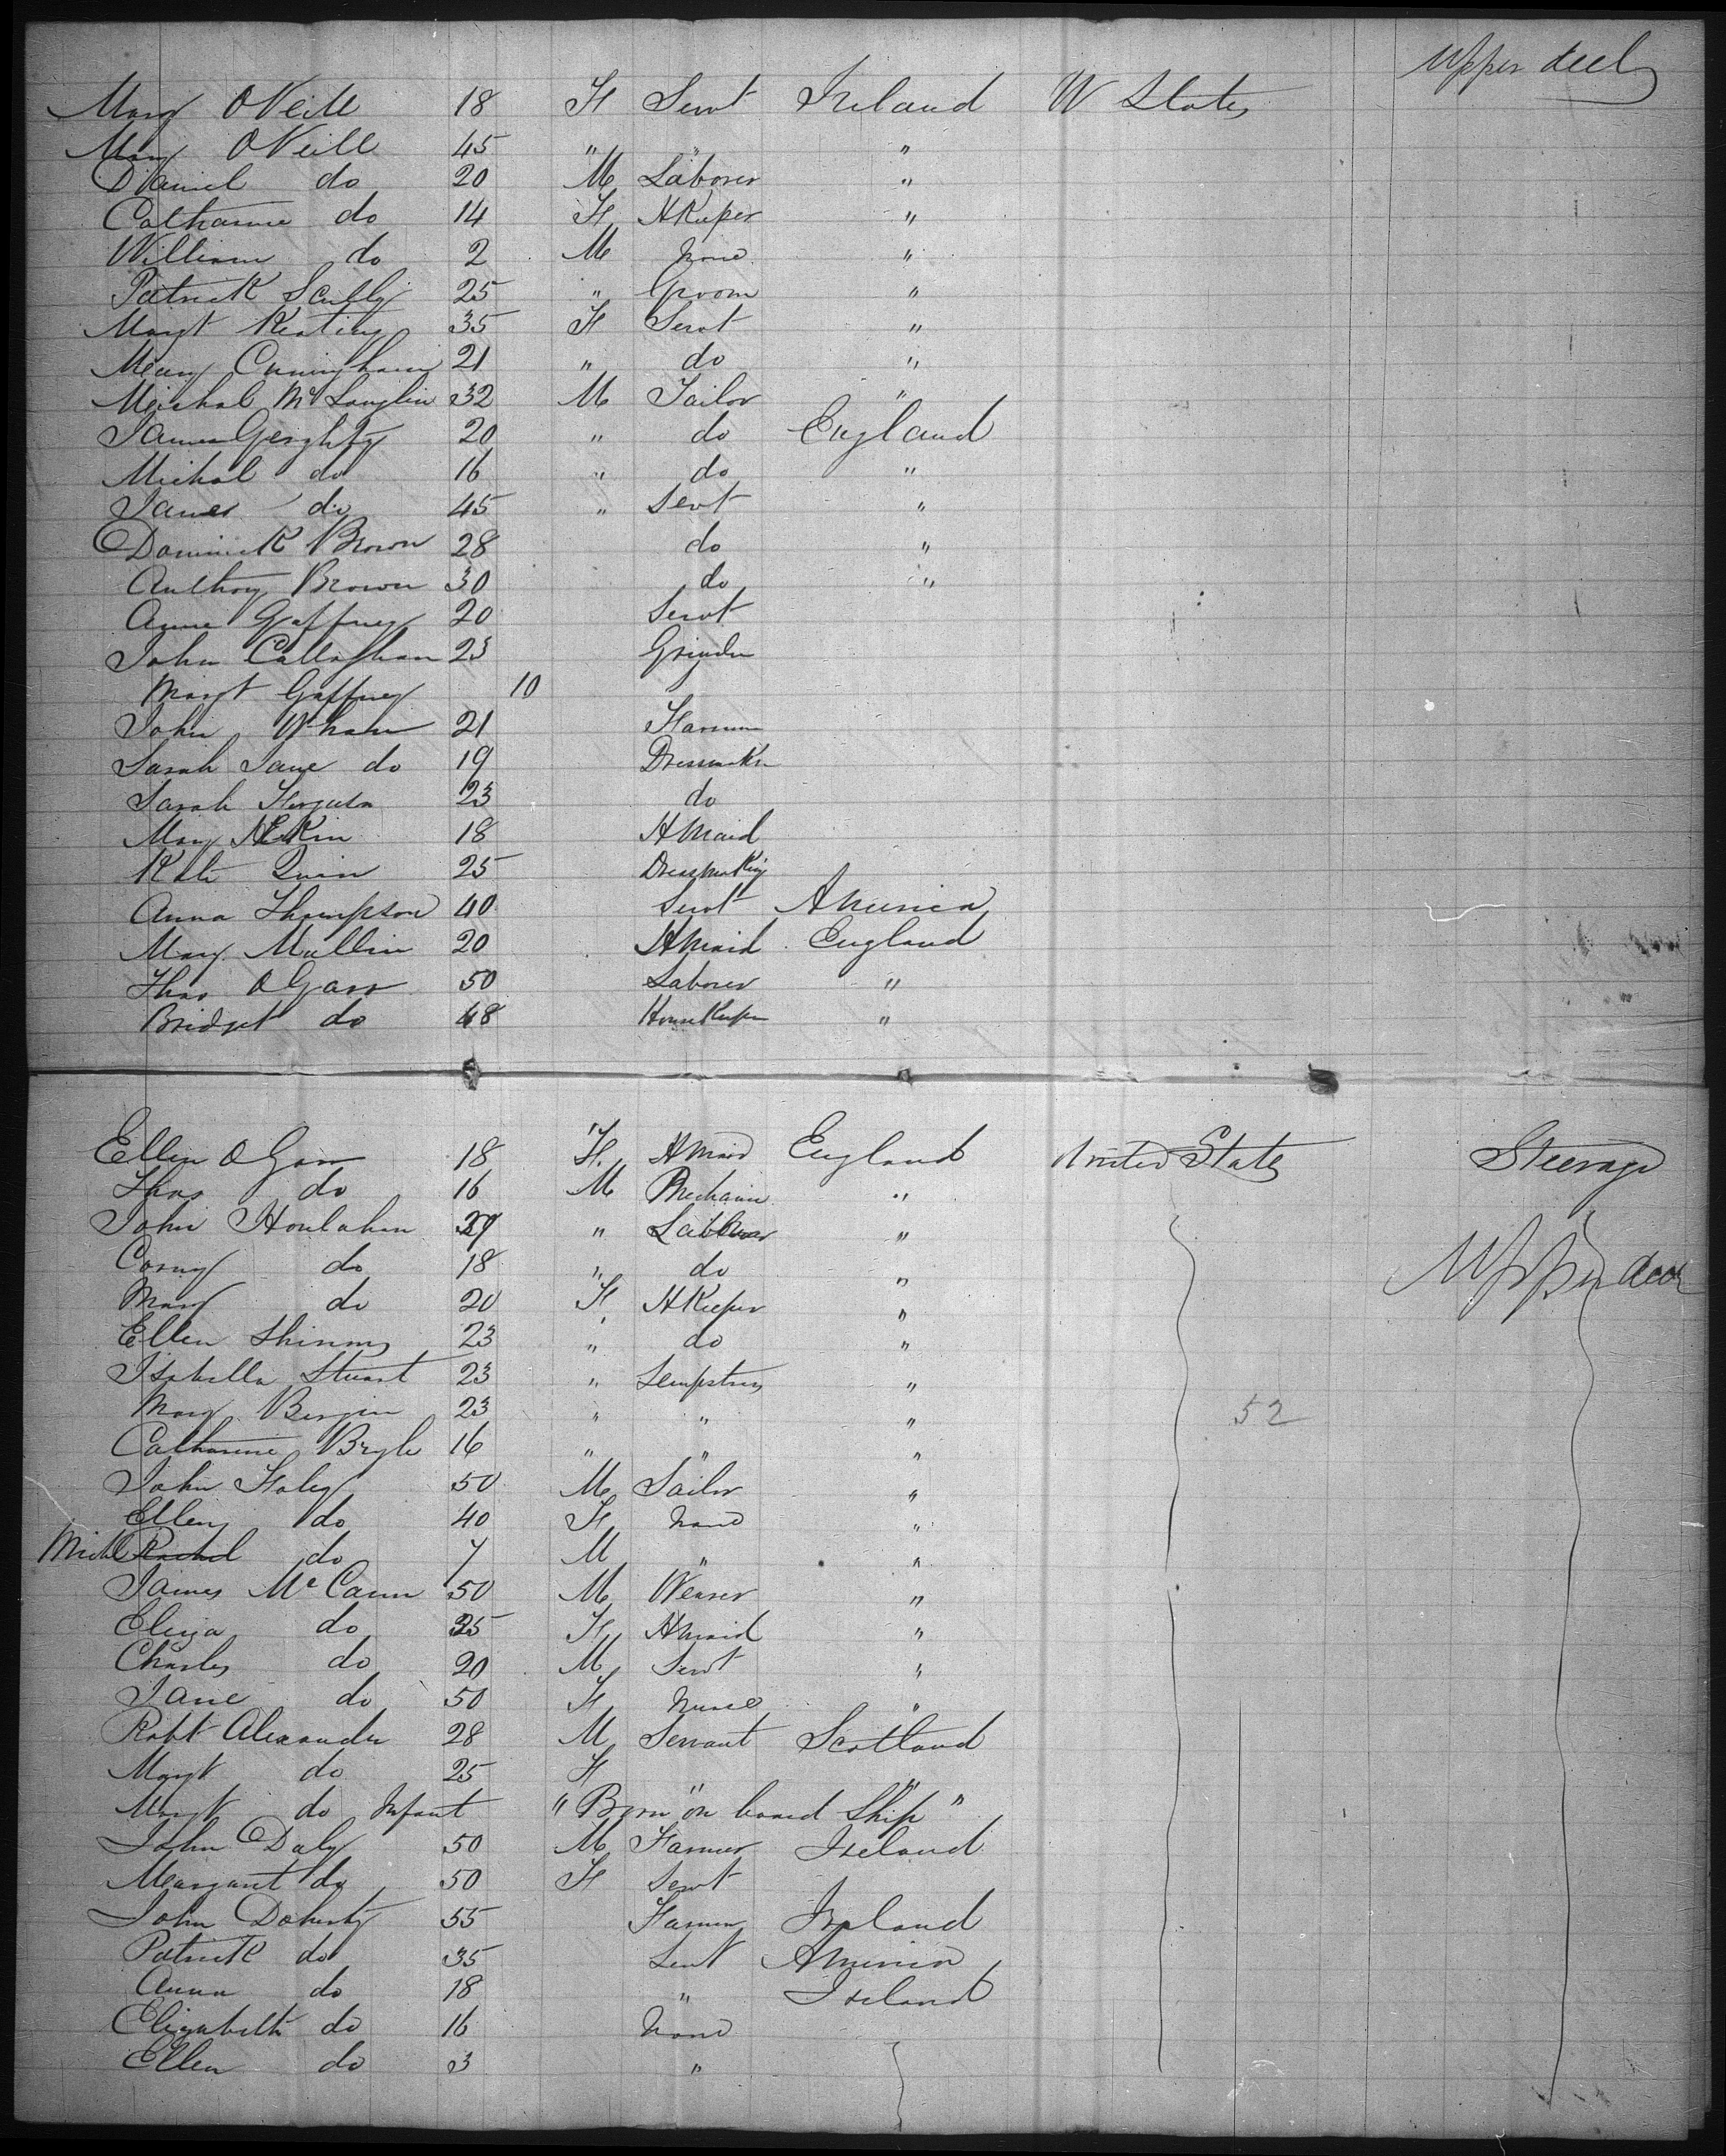 Upper deck
Mary O Neill 18 F Servt Ireland U States
Mary O Neill 45 " " "
Daniel do 20 M Laborer "
Catharine do 14 F HKeeper "
William do 2 M None "
Patrick Scully 25 " Groom "
Margt Keating 35 F Servt "
Mary Cuningham 21 " do "
Michal Mc Langlin 32 M Tailor "
James Geraghty 20 " do England
Michal do 16 " do "
James do 45 " Servt "
Dominick Brown 28 do "
Anthony Brown 30 do "
Anne Gaffney 20 Servt
John Callaghan 23 Grinder
Margt Gaffney 10
John 21 Farmer
Sarah Jane do 19 Dressmakr
Sarah Ferguson 23 do
Mary 18 HMaid
Kate Quin 25 Dressmaking
Anna Thompson 40 Servt America
Mary Mullin 20 HMaid England
Thos O Gara 50 Laborer "
Bridget do 48 HouseKeeper "
Ellen O Gara 18 F. HMaid England United States Steerage
Thos do 16 M Mechanic "
John Houlahan 27 " Laborer "
Corny do 18 " do " Upper deck
Mary do 20 F HKeeper "
Ellen 23 " do "
Isabella Stuart 23 " Sempstress "
Mary Bergin 23 " " " 52
Catharine 16 " " "
John Foley 50 M Sailor "
Ellen do 40 F None "
Michl do 7 M " "
James Mc Cann 50 M Weaver "
Eliza do 35 F HMaid "
Charles do 20 M Servt "
Jane do 50 F Nurse "
Robt Alexander 28 M Servant Scotland
Margt do 25 F " "
Margt do Infant "Born on board Ship"
John Daly 50 M Farmer Ireland
Margaret do 50 F Servt
John Doherty 55 Farmer Ireland
Patrick do 35 Servt America
Anna do 18 " Ireland
Elizabeth do 16 None
Ellen do 3 "